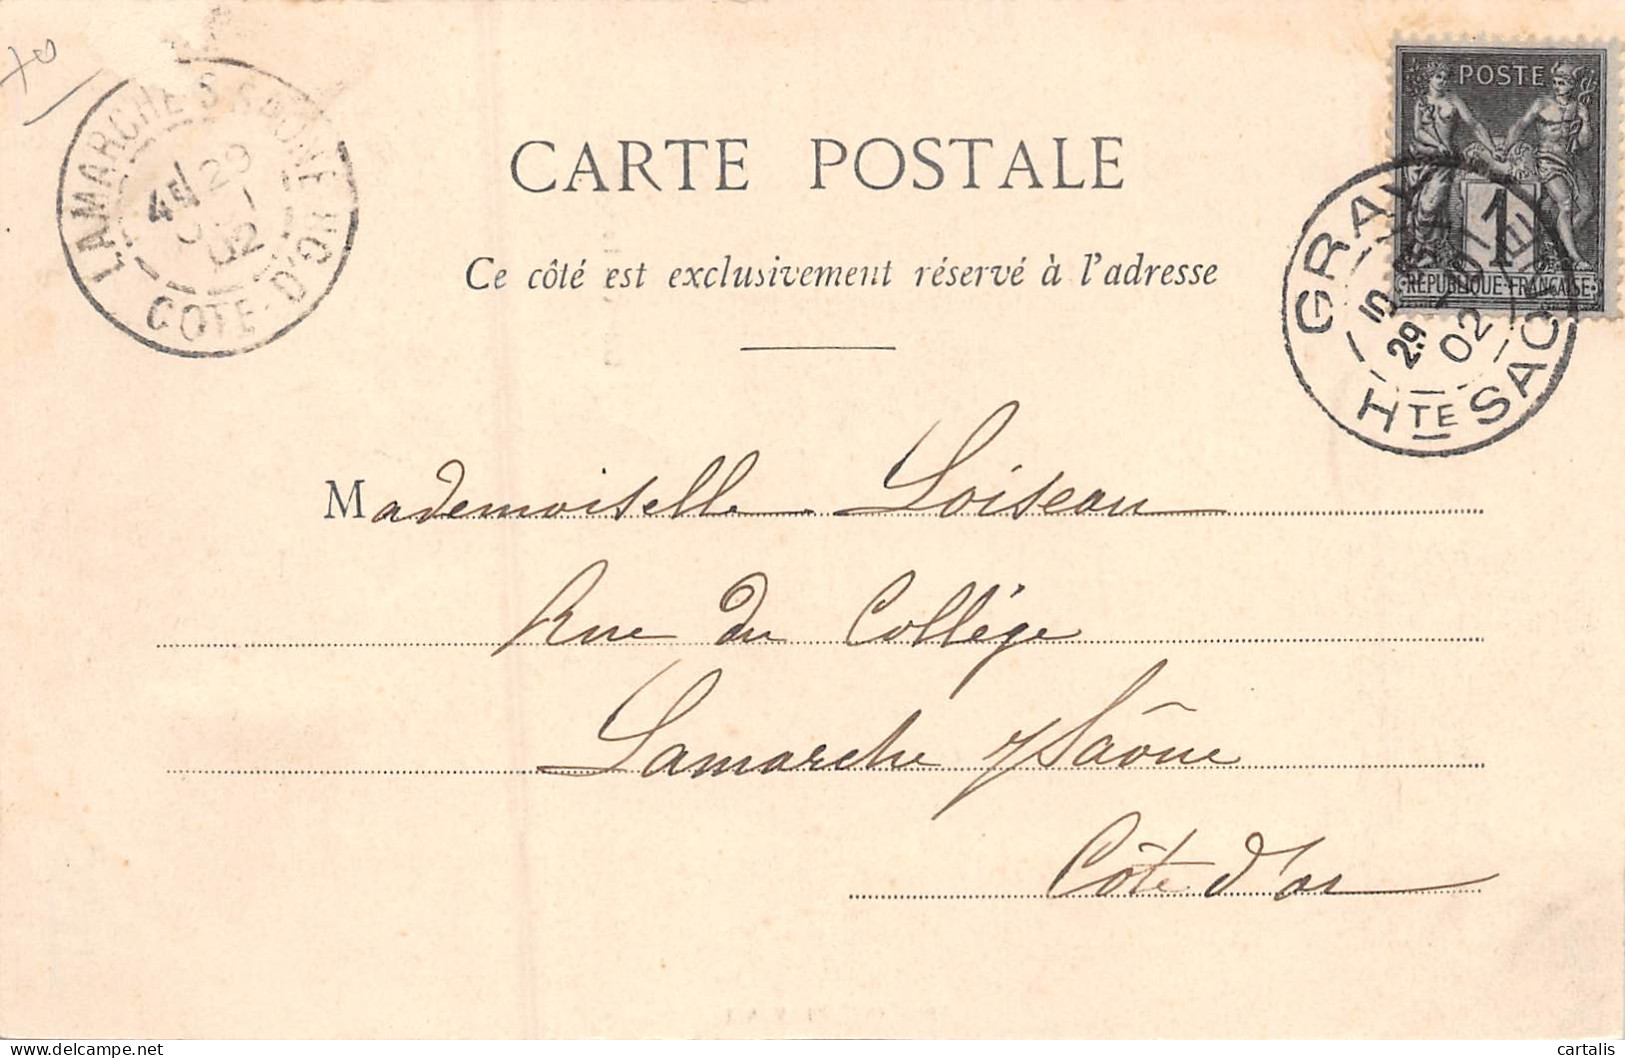 70
LAMARCHE S SAONE
29
02
COTE-D'OR
POSTE
1
RÉPUBLIQUE FRANÇAISE
GRAY
29
02
HTE SAONE
CARTE POSTALE
Ce côté est exclusivement réservé à l'adresse
Mademoiselle Loiseau
Rue du Collège
Lamarche s/Saône
Côte d'or
www.delcampe.net
cartalis